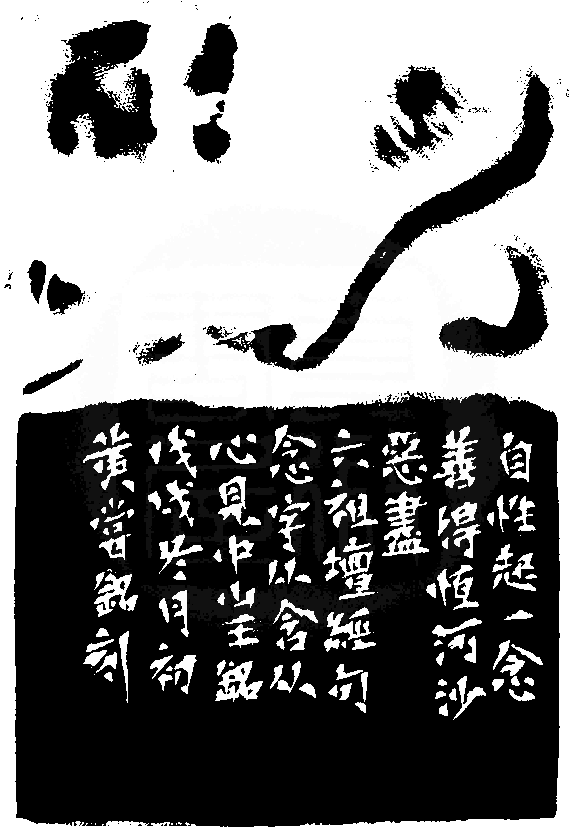 自性起一念
善得恆河沙
惡盡
六祖壇經句
念字从含从
心見中山王銘
戊戌冬月初
黃嘗銘刻